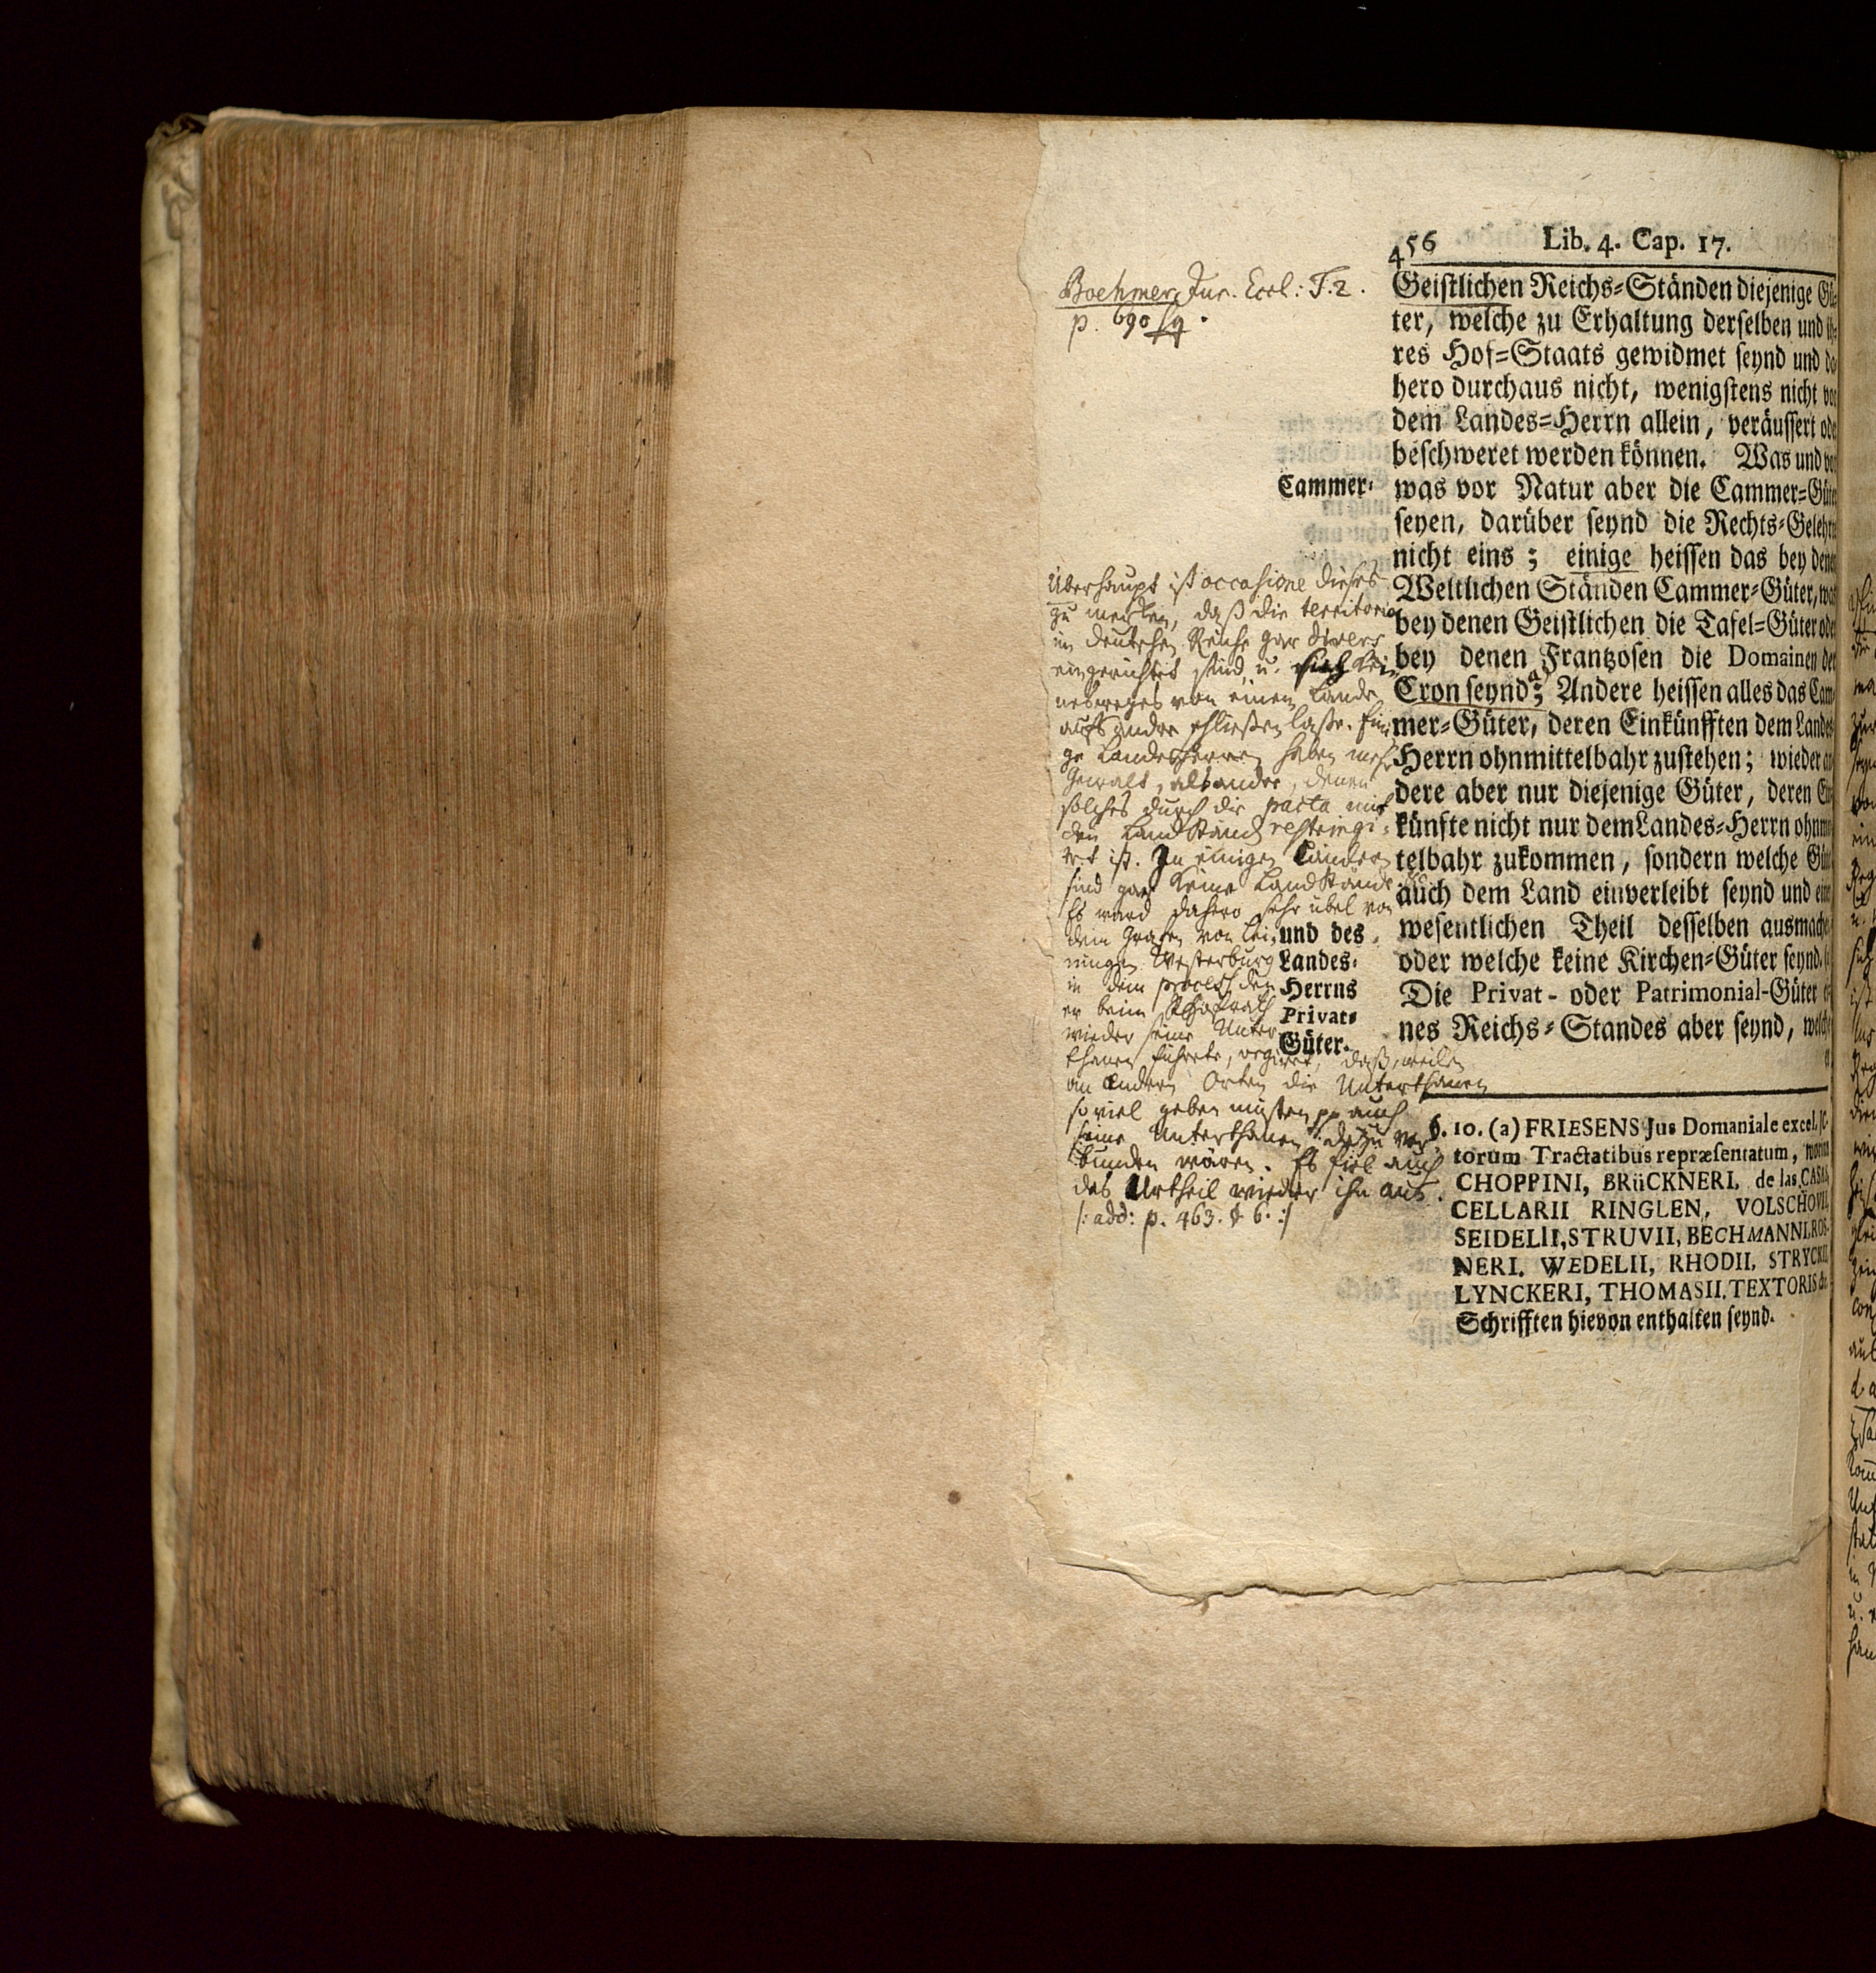 456 Lib. 4. Cap. 17.
Boehmer, Jur. Eccl: T. 2.
p. 690 sq.
Geistlichen Reichs-Ständen diejenige Gü-
ter, welche zu Erhaltung derselben und ih-
res Hof-Staats gewidmet seynd und da-
hero durchaus nicht, wenigstens nicht von
dem Landes-Herrn allein, veräussert oder
beschweret werden können. Was und von
Cammer-
was vor Natur aber die Cammer-Güter
seyen, darüber seynd die Rechts-Gelehrte
nicht eins; einige heissen das bey denen
Weltlichen Ständen Cammer-Güter, was
bey denen Geistlichen die Tafel-Güter oder
bey denen Frantzosen die Domainen der
Cron seynd; Andere heissen alles das Cam-
mer-Güter, deren Einkünfften dem Landes-
Herrn ohnmittelbahr zustehen; wieder an-
dere aber nur diejenige Güter, deren Ein-
künfte nicht nur dem Landes-Herrn ohnmit-
telbahr zukommen, sondern welche Güter
auch dem Land einverleibt seynd und einen
wesentlichen Theil desselben ausmachen
oder welche keine Kirchen-Güter seynd.
und des
Landes-
Herrns
Privat-
Güter.
Die Privat- oder Patrimonial-Güter ei-
nes Reichs-Standes aber seynd, welche
Überhaupt ist occasione dieses
zu merken, daß die territoria
im deutschen Reiche gar divers
eingerichtet sind, u. sich kei-
nesweges von einem Lande
aufs andre schließen laße. Eini-
ge Landesherren haben mehr
Gewalt, als andre, denen
solches durch die pacta mit
den LandStänd restringi-
ret ist. In einigen Ländern
sind gar keine LandStände
Es ward dahero sehr übel von
dem Grafen von Lei-
ningen Westerburg
in dem process den
er beim RHofrath
wieder seine Unter
thanen führete, urgiret, daß, weilen
an andern Orten die Unterthanen
so viel geben müsten pp auch
seine Unterthanen dazu ver
bunden wären. Es fiel auch
das Urtheil wieder ihn aus.
/: add: p. 463. & 6. :/
§. 10. (a) FRIESENS Jus Domaniale excel. sc-
torum Tractatibus repræsentatum, worinn
CHOPPINI, BRüCKNERI, de las CASAS,
CELLARII RINGLEN, VOLSCHOVII,
SEIDELII, STRUVII, BECHMANNI, ROS-
NERI, WEDELII, RHODII, STRYCKII,
LYNCKERI, THOMASII, TEXTORIS &c.
Schrifften hievon enthalten seynd.